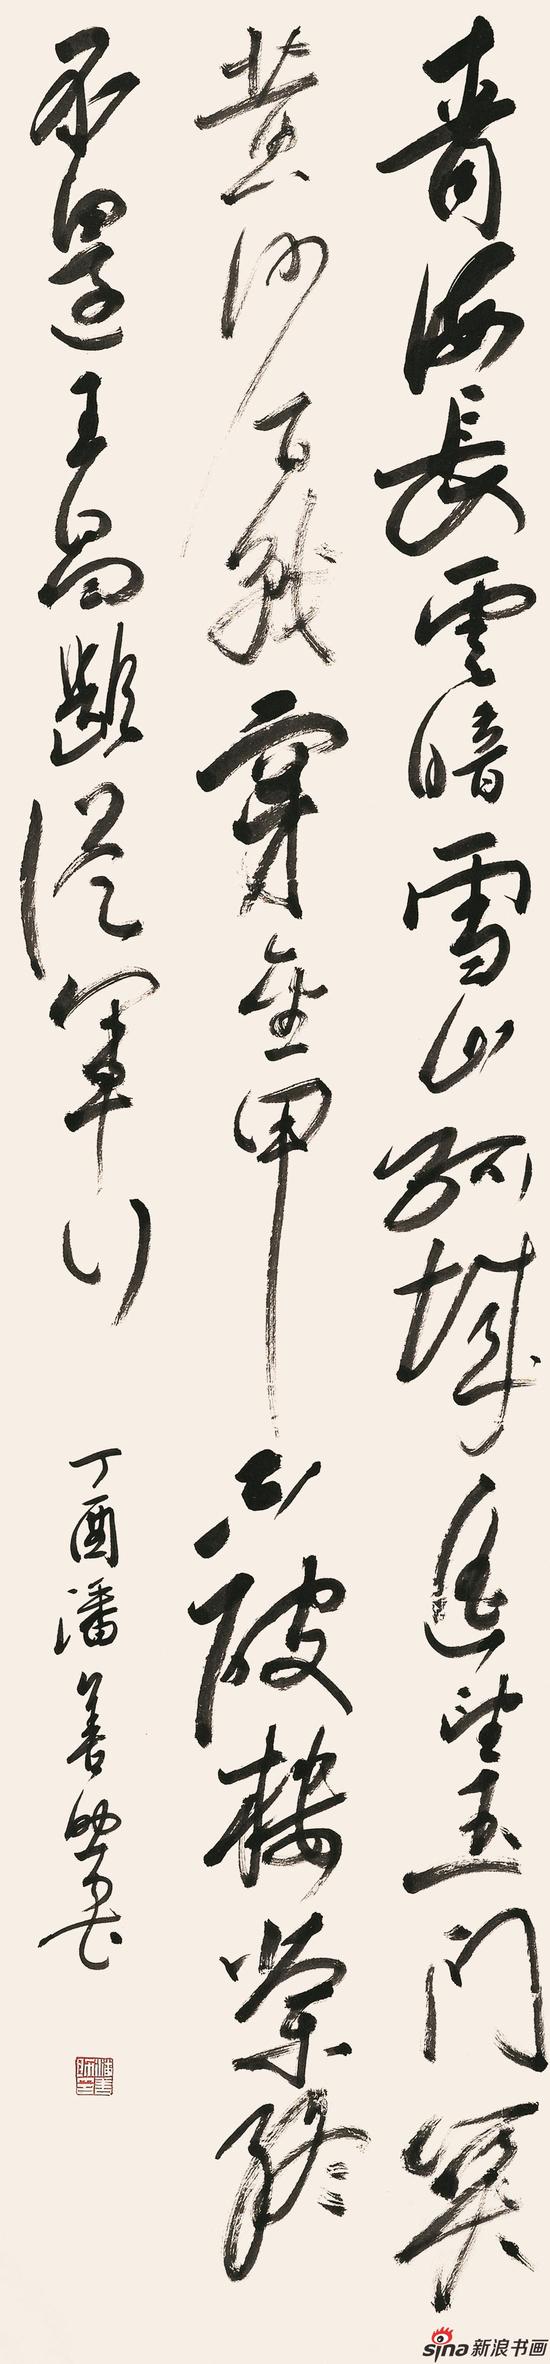 青海長雲暗雪山孤城遥望玉門關
黄沙百戰穿金甲不破樓蘭終
不還王昌齡從軍行
丁酉潘善助書
sina新浪书画